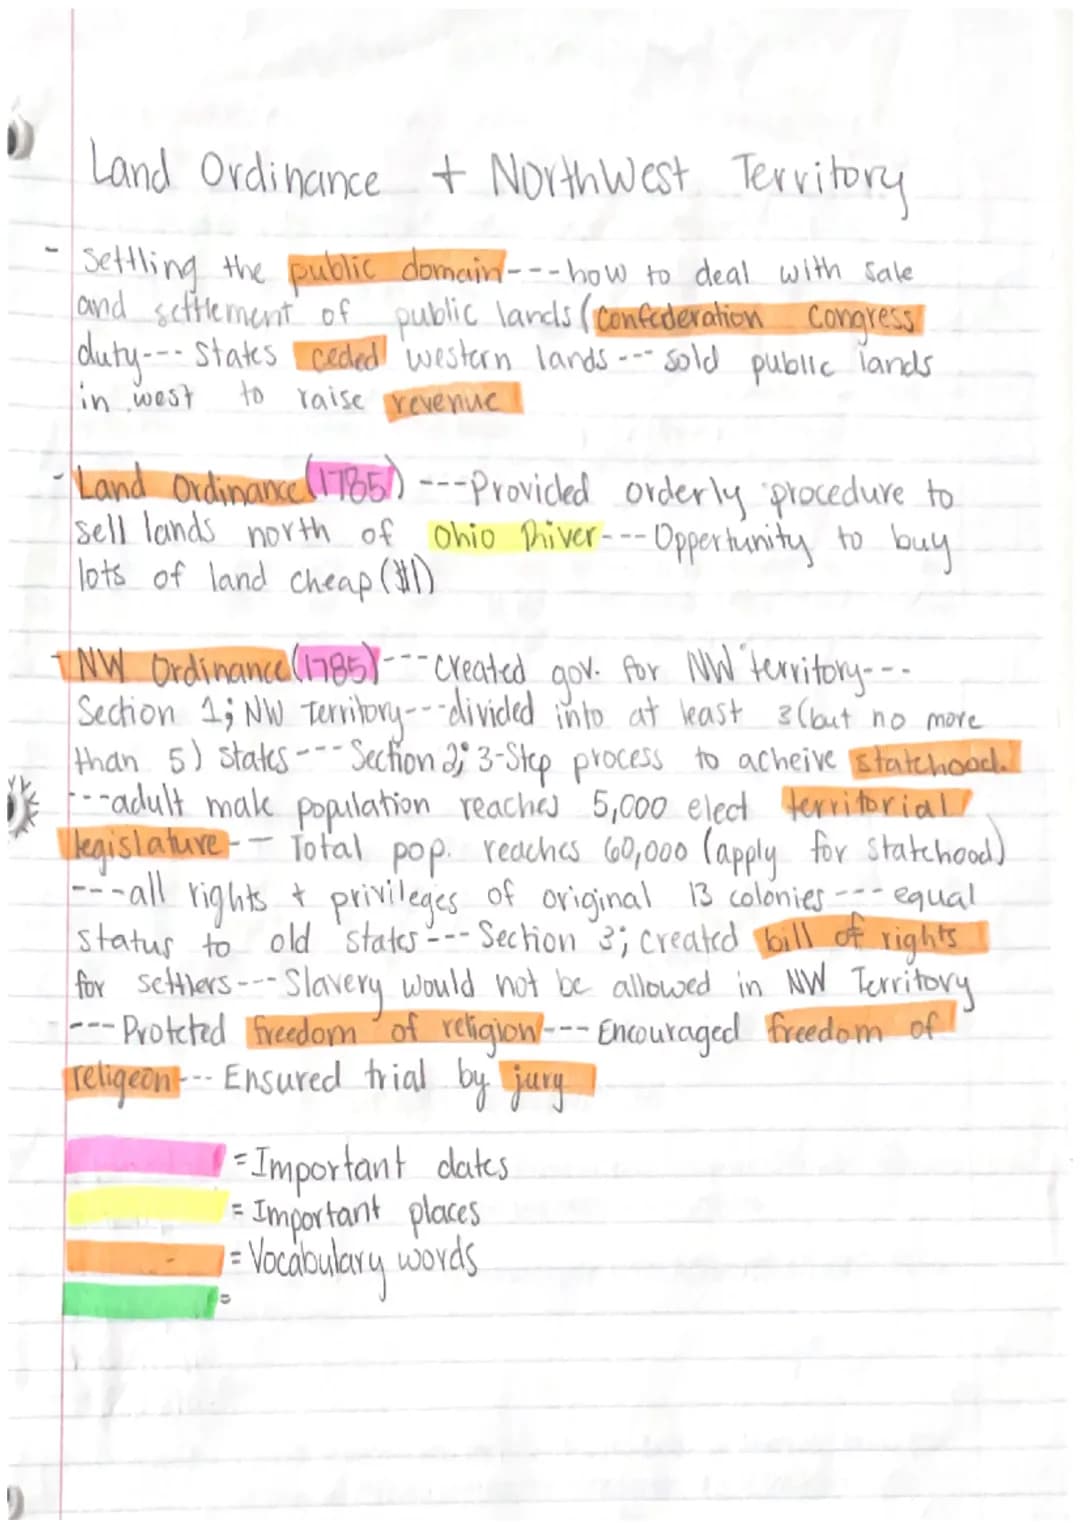 Land Ordinance + NorthWest Territory
- settling the public domain---how to deal with sale
and settlement of public lands (Confederation Congress
duty--- States ceded western lands --- sold public lands
in west to raise revenue
- Land Ordinance (1785) ---Provided orderly procedure to
sell lands north of Ohio River--- Oppertunity to buy
lots of land cheap ($1)
- NW Ordinance (1785)---created gov. for NW territory---
Section 1; NW Territory---divided into at least 3 (but no more
than 5) states --- Section 2; 3-Step process to acheive statehood.
---adult male population reaches 5,000 elect territorial
legislature-- Total pop. reaches 60,000 (apply for statehood)
---all rights + privileges of original 13 colonies --- equal
status to old states --- Section 3; created bill of rights
for settlers--- Slavery would not be allowed in NW Territory
--- Protcted freedom of religion--- Encouraged freedom of
religeon--- Ensured trial by jury
= Important dates
= Important places
= Vocabulary words
=